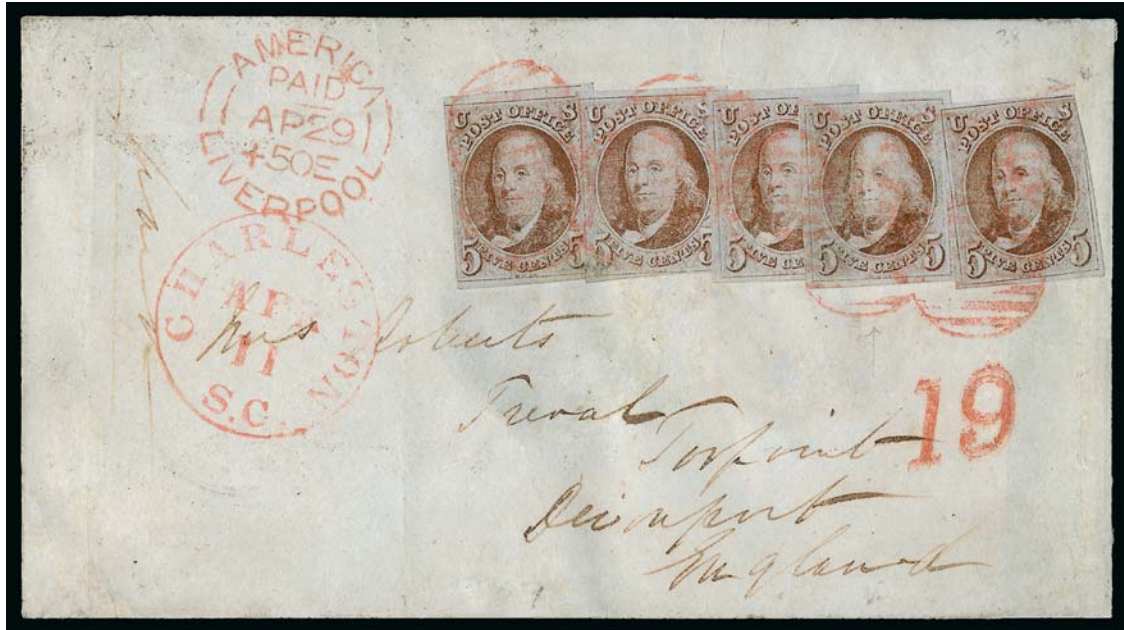 AMERICA
PAID
AP29
+50E
LIVERPOOL
CHARLESTON
APR
11
S.C.
U POST OFFICE S
5 FIVE CENTS 5
U POST OFFICE S
5 FIVE CENTS 5
U POST OF
5 FIVE CENTS
U POST OFFICE S
5 FIVE CENTS 5
U POST OFFICE S
5 FIVE CENTS 5
Mrs Roberts
Treval
Torpoint
Devonport
England
19